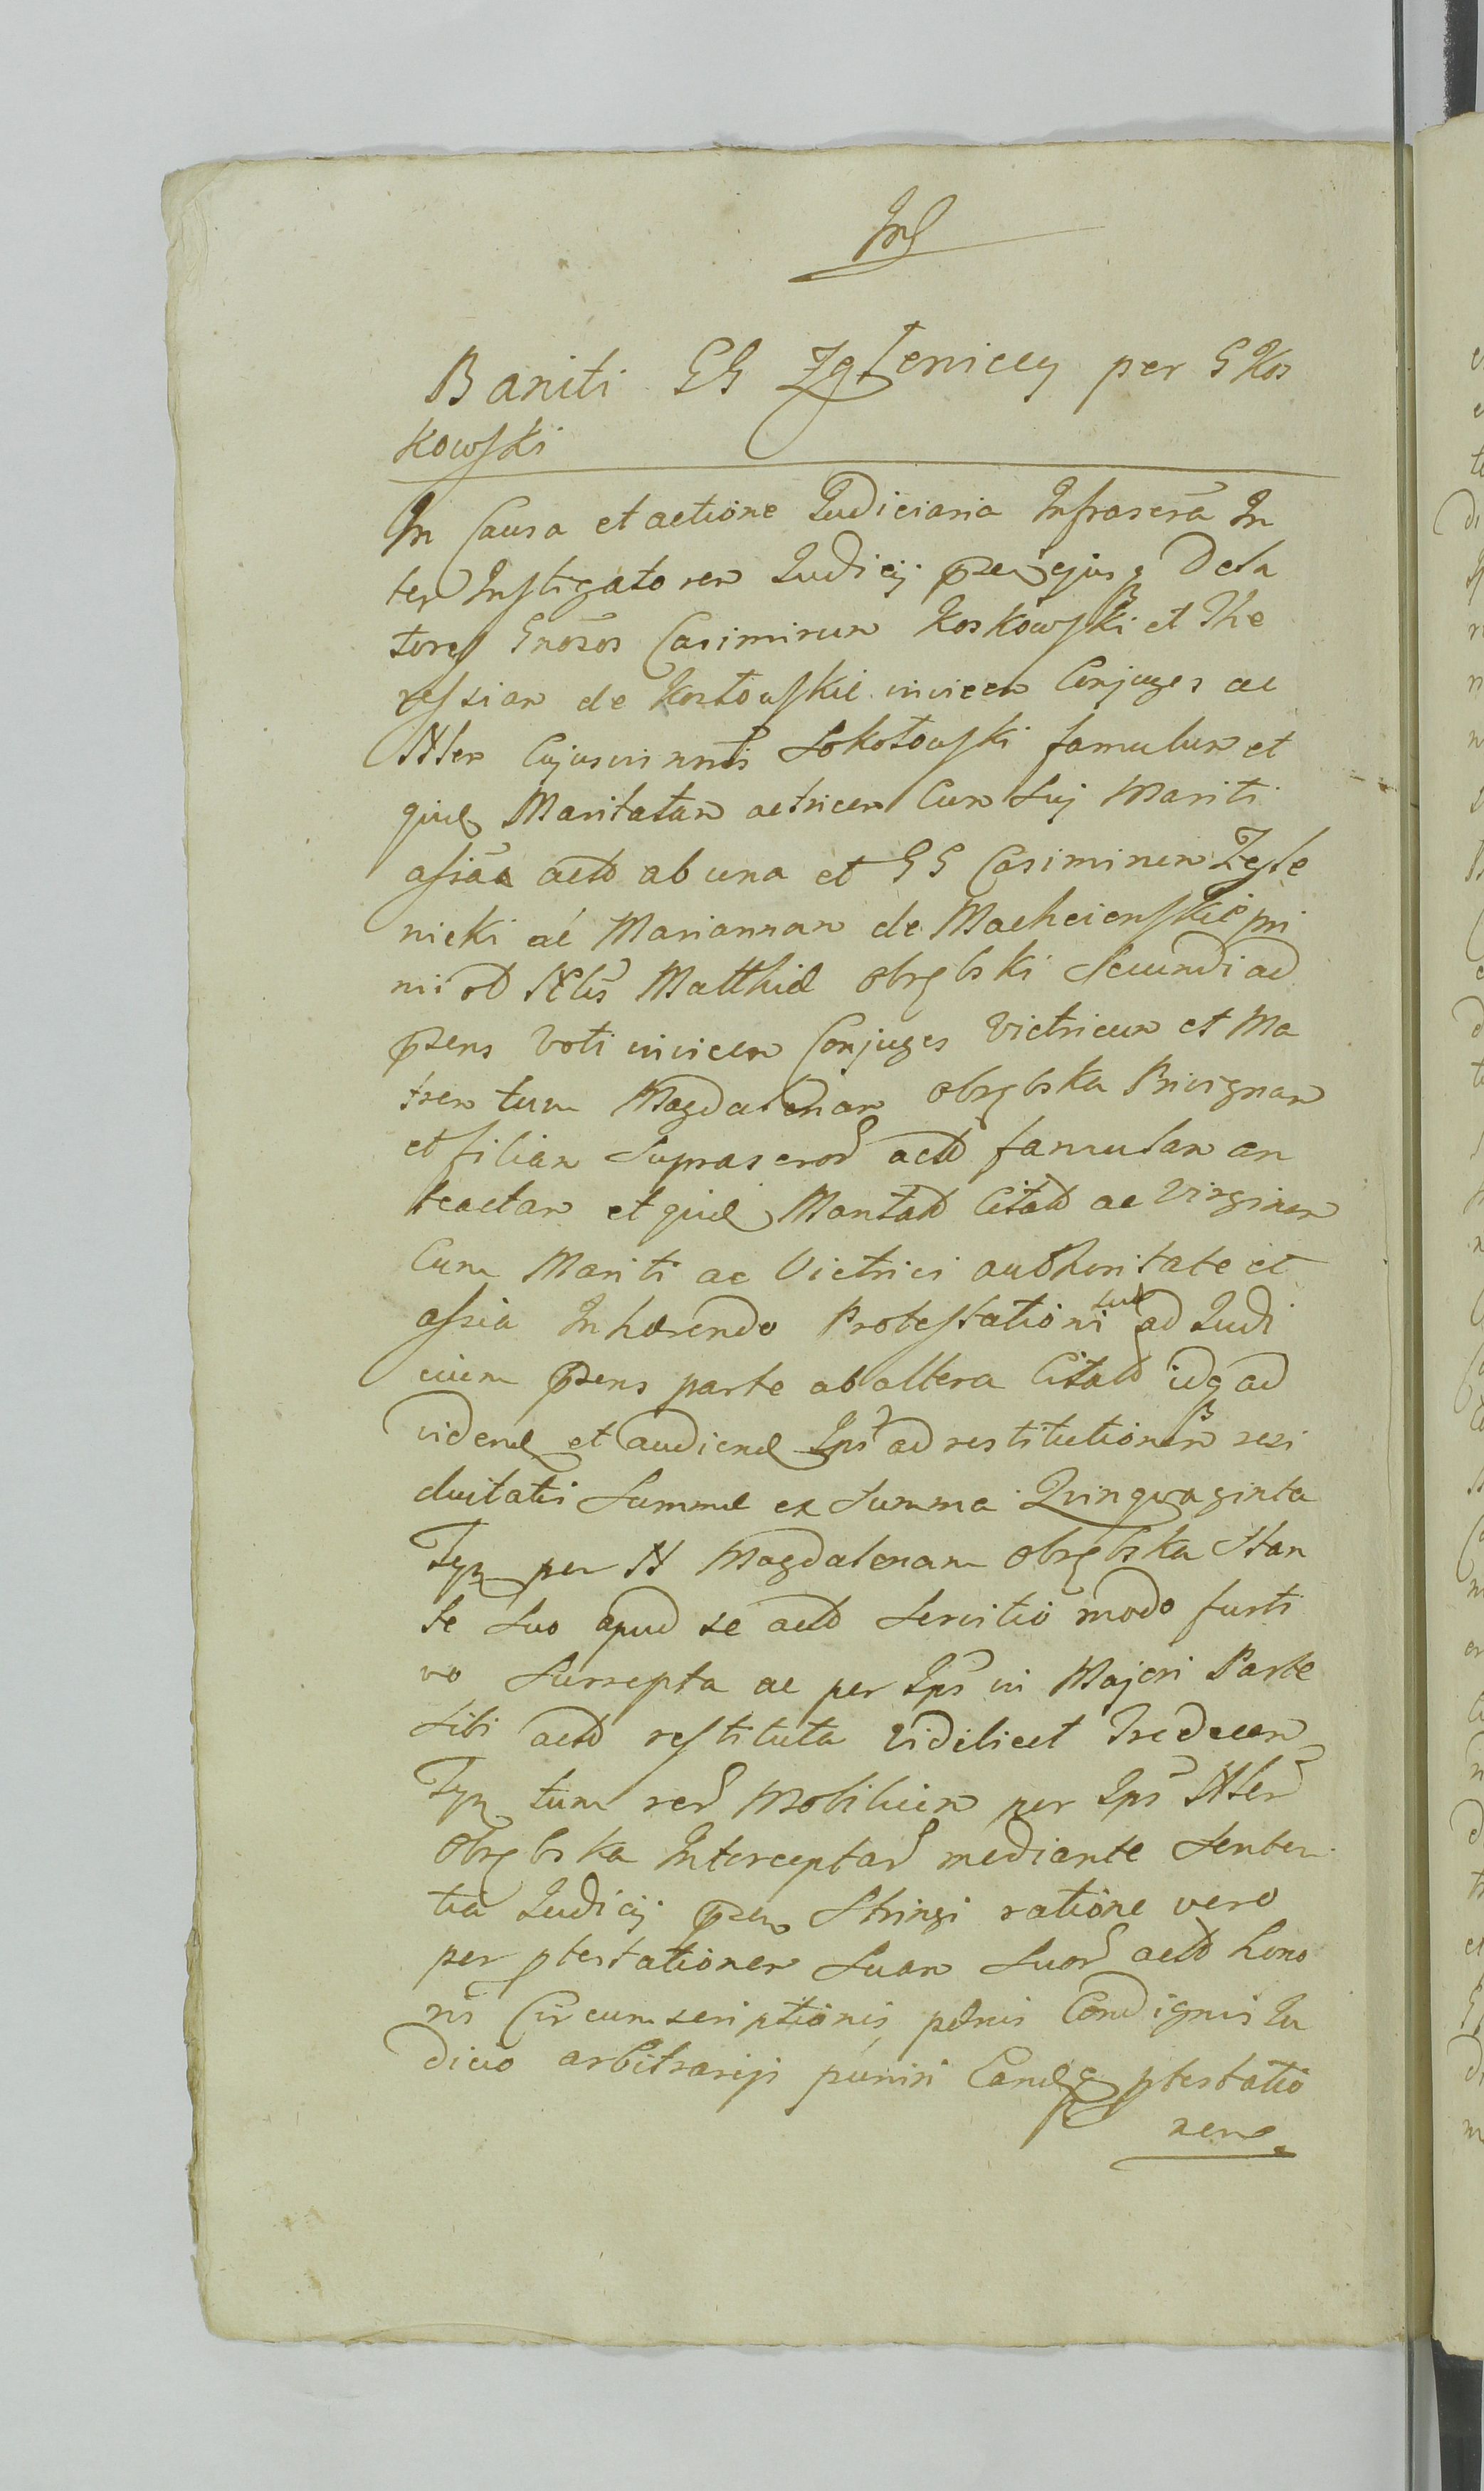 Baniti GG Zgleniccy per G Kos
kowski
In Causa et actione Judiciaria Infrascrã In
ter Instigatorem Judicij ejusq Dela
tores Gnosos Casimirum Koskowski et The
ressiam de invicem Conjuges ac
Nlem Cujusvi Sokołowski famulum et
quid Maritatam actricem Cum Sui Mariti
assãa actd ab una et GG Casimirum Zgle
nicki ac Mariannam de pri
mi Matthiæ Obrębski Secundi ad
pzens Voti invicem Conjuges Victricum et Ma
trem tum Magdalenam Obrębska Privignam
et filiam Suprascrord actd famulam an
teactam et quid Maritatd Citatd ac Virginem
Cum Mariti ac Victrici authoritate et
assia Inhærendo Protestationi suæ ad Judi
cium pzens parte ab altera Citatd idq ad
videnđ et audiend Ips ad restitutionem resi
duitatis Summæ ex Summa Quinqvaginta
per N Magdalenam Obrębska Stan
te Suo apud se actd Servitio modo furti
vo Surrepta ac per Ips in Majori Parte
Sibi actd restituta videlicet Tredecem
tum rerd Mobilium per Ips Nlem
Obrębska Interceptard mediante Senten
tia Judicij pzen Stringi ratione vero
per ptestationem Suam Suord actd hono
ris Circumscriptionis pænis Condignis Ju
dicio arbitrarijs puniri Eandq ptestatio
nem